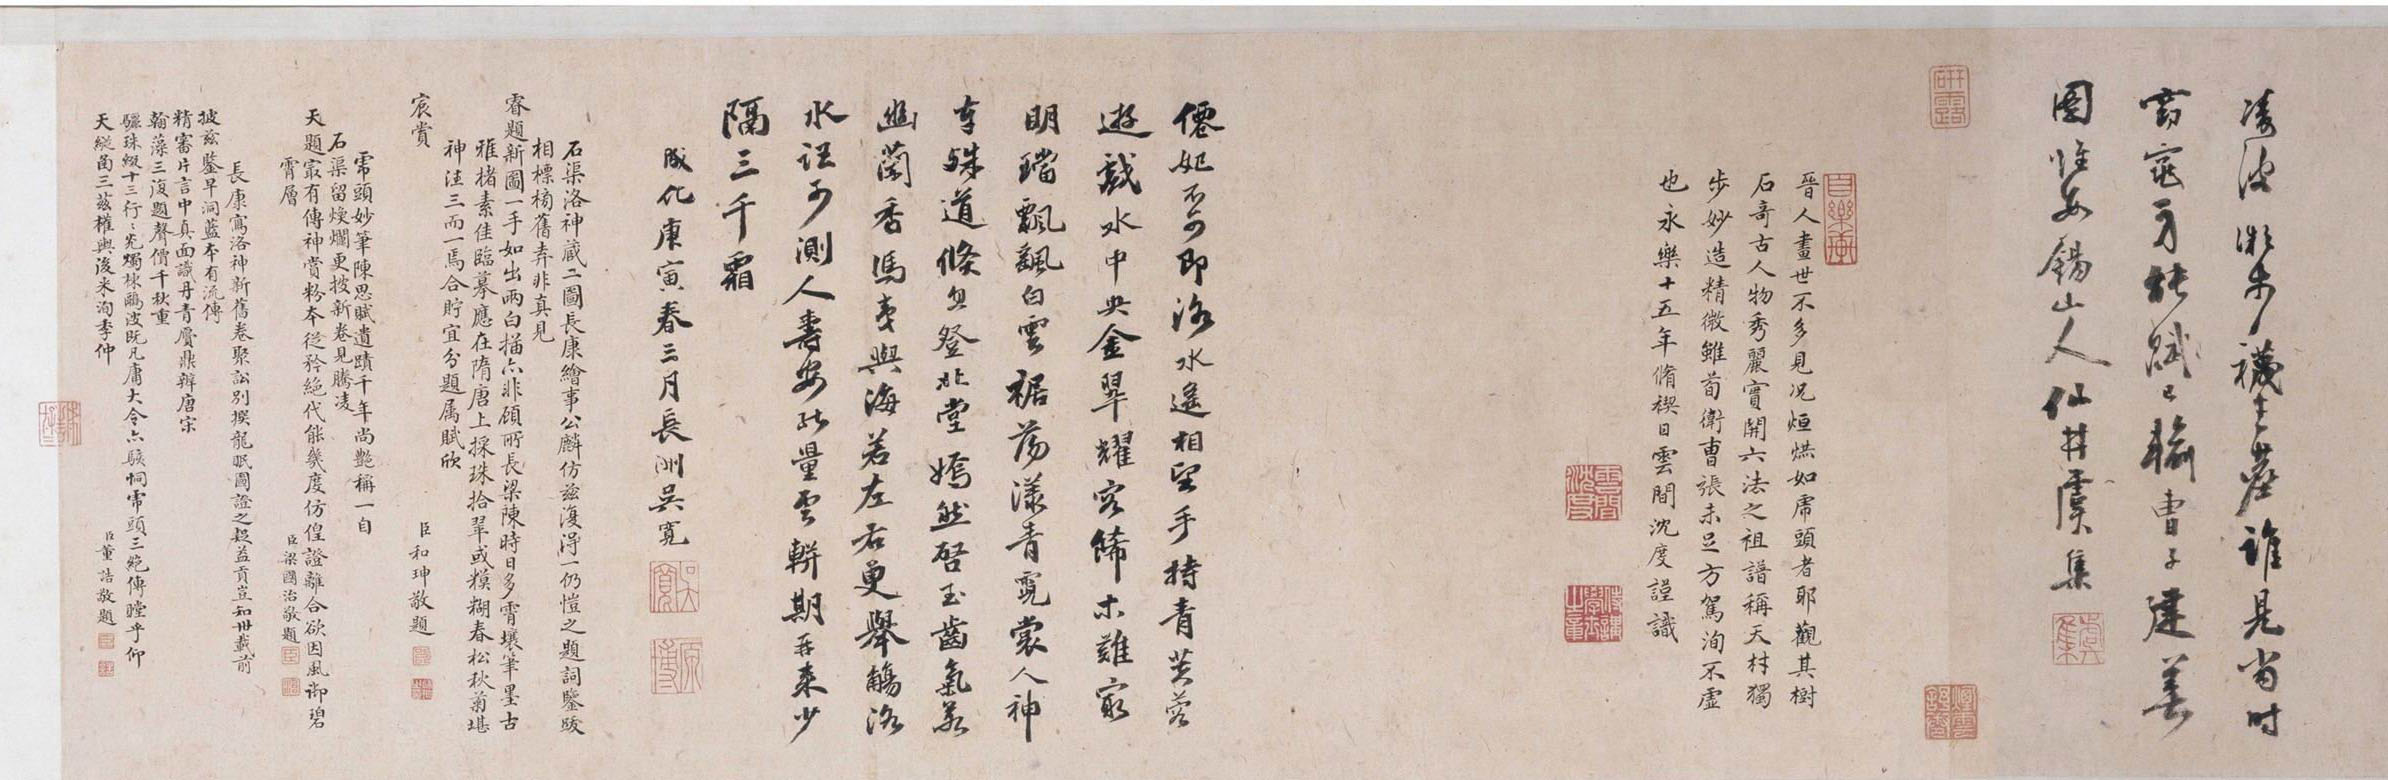 凌波微步襪生塵誰見當時
窈窕身能賦已輸曹子建善
圖惟女錫山人仙井虞集
晉人畫世不多見况烜烘如虎頭者耶觀其樹
石奇古人物秀麗實開六法之祖譜稱天材獨
步妙造精微雖荀衛曹張未足方駕洵不虛
也永樂十五年脩禊日雲間沈度謹識
僊妃不可即洛水遙相望手持青芙蓉
遊戲水中央金翠耀容飾古難寂
明璫飄颻白雲裾蕩漾青霓裳人神
有殊道倏忽登北堂嫣然啓玉齒氣若
幽蘭香馮夷與海若左右更舉觴洛
水詎可測人壽安此量雲軿期再來少
隔三千霜
成化庚寅春三月長洲吳寬
石渠洛神藏二圖長康繪事公麟仿兹復浔一仍愷之題詞鑒跋
相標橋舊弆非真見
睿題新圖一手如出兩白描亦非顧所長梁陳時日多霄壤筆墨古
雅楮素佳臨摹應在隋唐上採珠拾翠或糢糊春松秋菊堪
神注三而一焉合貯宜分題属賦欣
宸賞
臣和珅敬題
虎頭妙筆陳思賦遺蹟千年尚艷稱一自
石渠留煥爛更披新卷見騰凌
天題㝡有傳神賞粉本從矜絕代能幾度仿偟證離合欲因風御碧
霄層
臣梁國治敬題
長康寫洛神新舊卷聚訟別撰龍眠圖證之趣益貢豈知卅載前
披兹鑒早洞藍本有流傳
精審片言中真面識丹青贗鼎辨唐宋
翰藻三復題聲價千秋重
驪珠綴十三行〻光燭棟鷗波既凡庸大令亦駭恫虎頭三絕傳瞠乎仰
天縱函三兹權輿後来洵季仲
臣董誥敬題